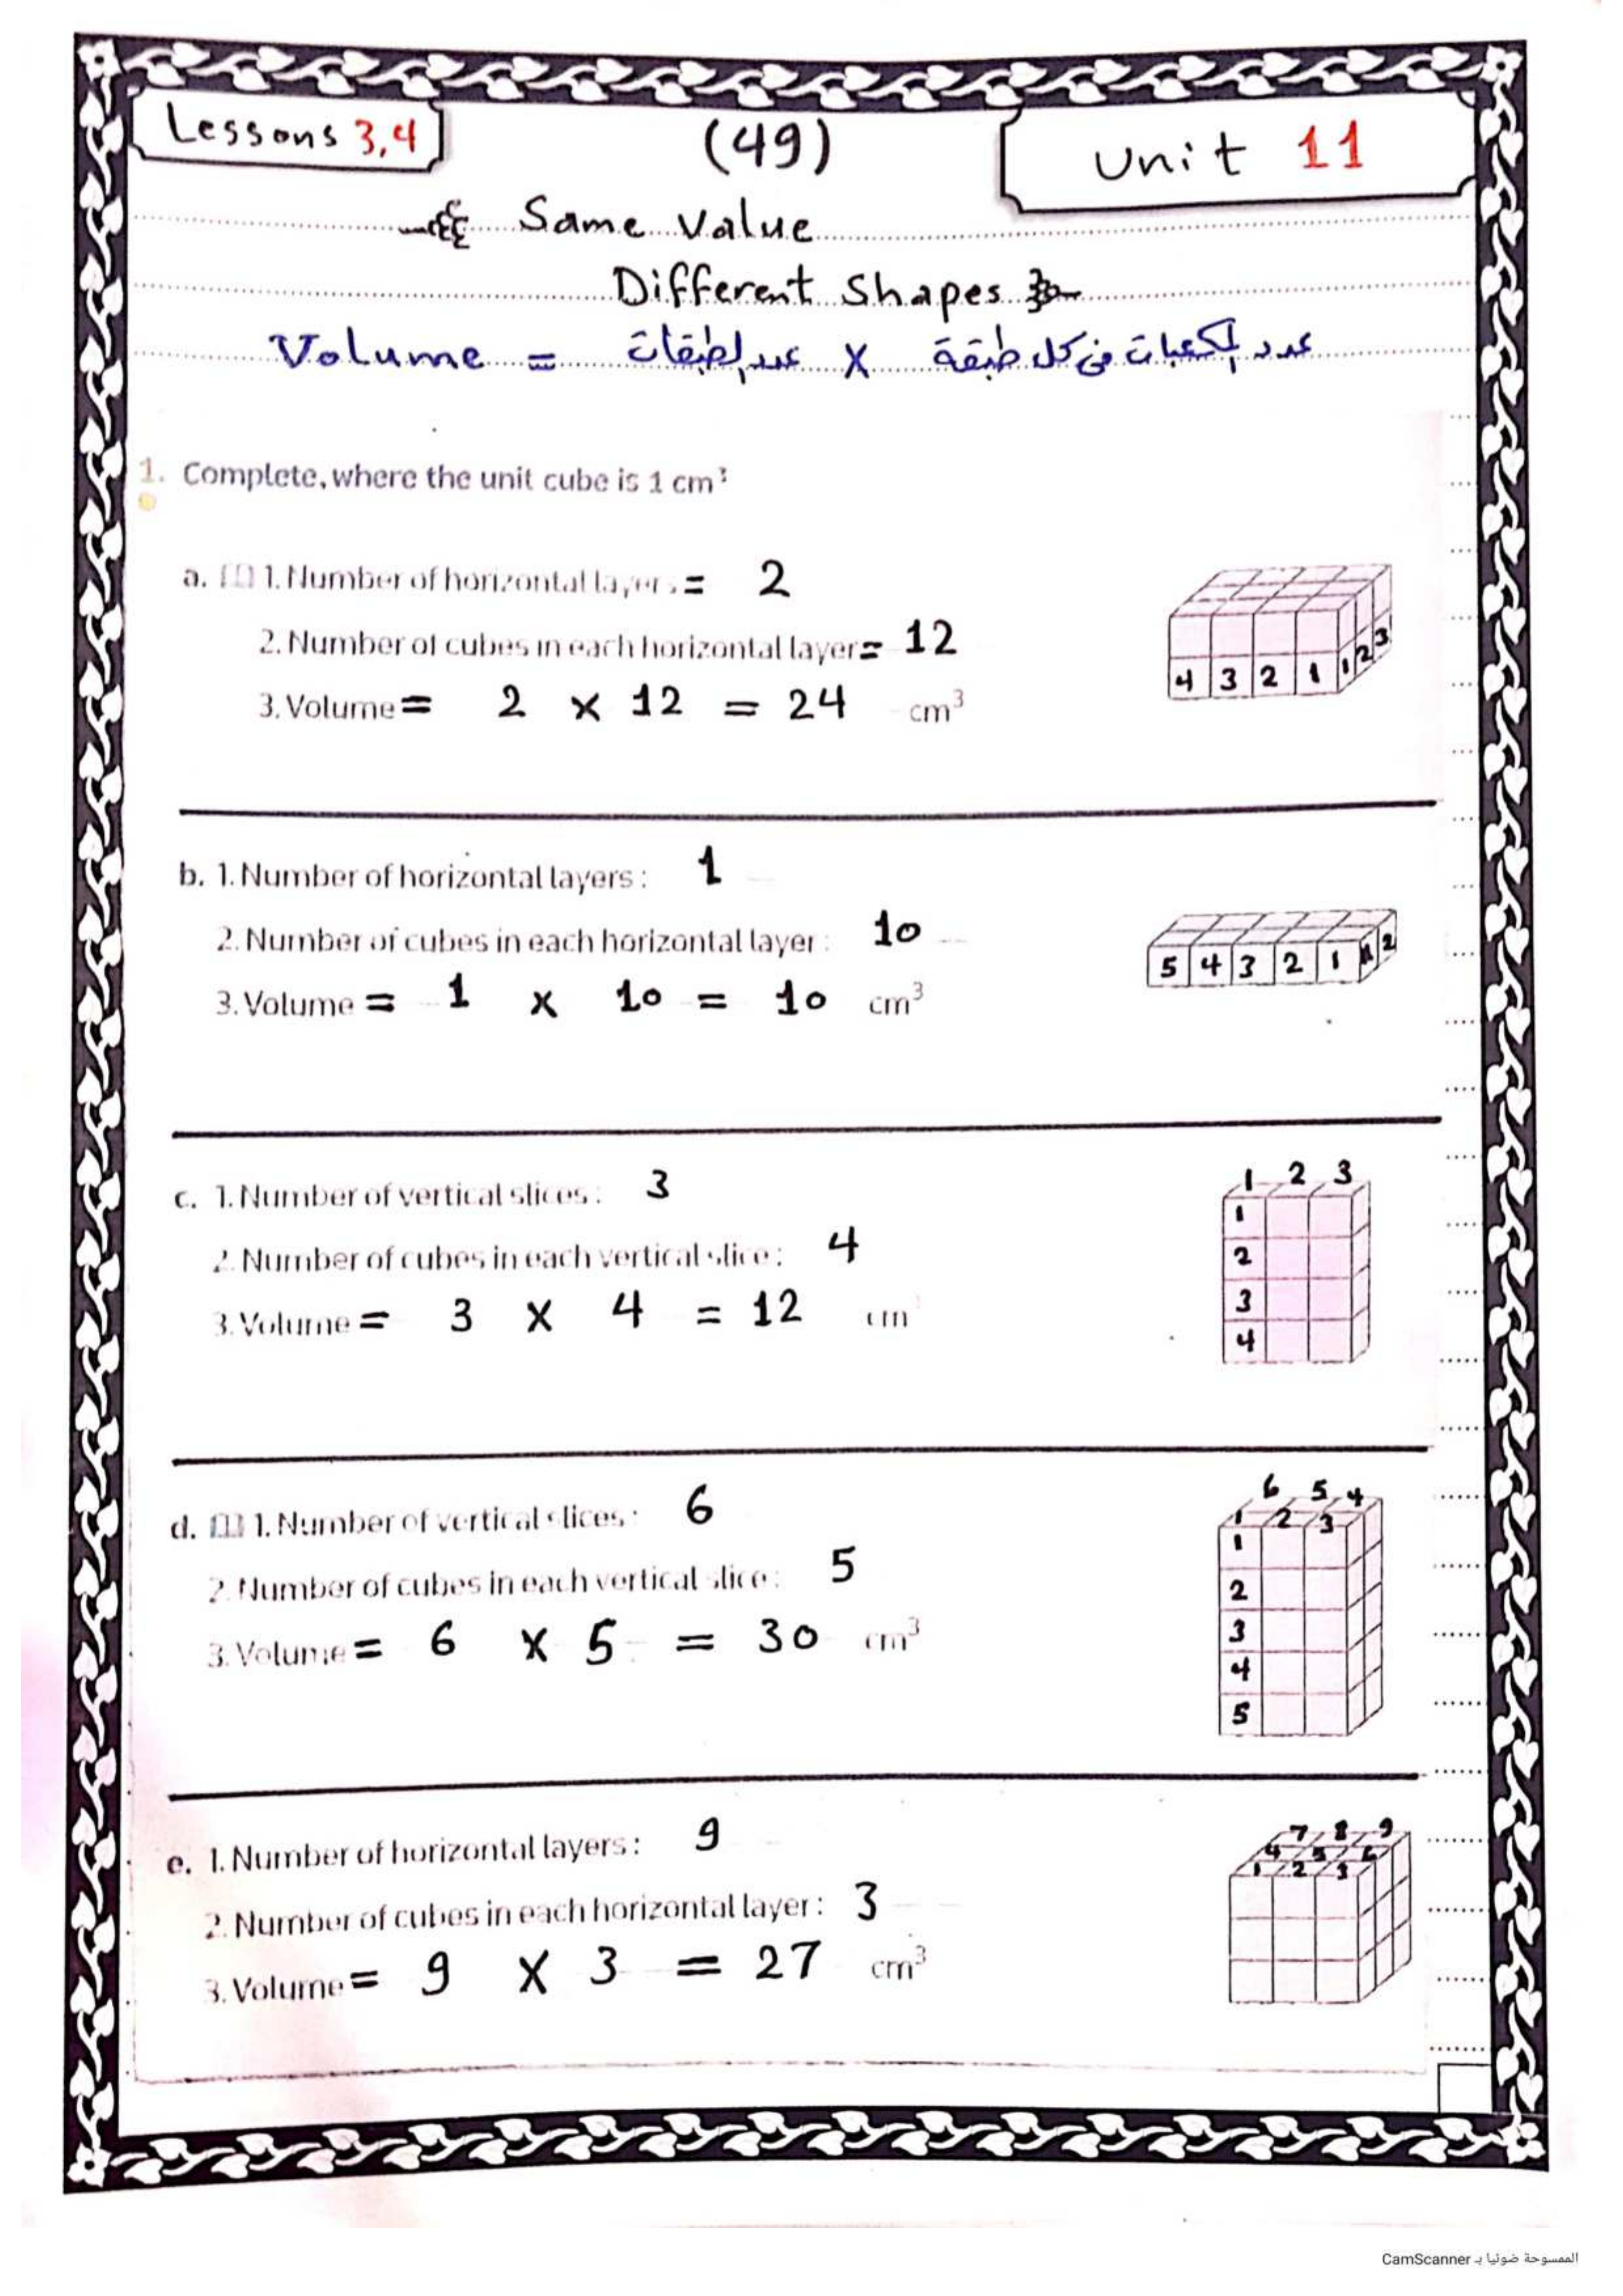 Lessons 3,4
(49)
Unit 11
Same Value
Different Shapes
Volume = عدد الطبقات X عدد المكعبات في كل طبقة
1. Complete, where the unit cube is 1 cm³
a. 1. Number of horizontal layers = 2
2. Number of cubes in each horizontal layer = 12
3. Volume = 2 × 12 = 24 cm³
4 3 2 1 1 2 3
b. 1. Number of horizontal layers : 1
2. Number of cubes in each horizontal layer : 10
3. Volume = 1 x 10 = 10 cm³
5 4 3 2 1 1 2
c. 1. Number of vertical slices : 3
2. Number of cubes in each vertical slice : 4
3. Volume = 3 X 4 = 12 cm
1 2 3
1
2
3
4
d. 1. Number of vertical slices : 6
2. Number of cubes in each vertical slice : 5
3. Volume = 6 X 5 = 30 cm³
6 5 4
1 2 3
1
2
3
4
5
e. 1. Number of horizontal layers : 9
2. Number of cubes in each horizontal layer : 3
3. Volume = 9 X 3 = 27 cm³
7 8 9
4 5 6
1 2 3
الممسوحة ضوئيا بـ CamScanner